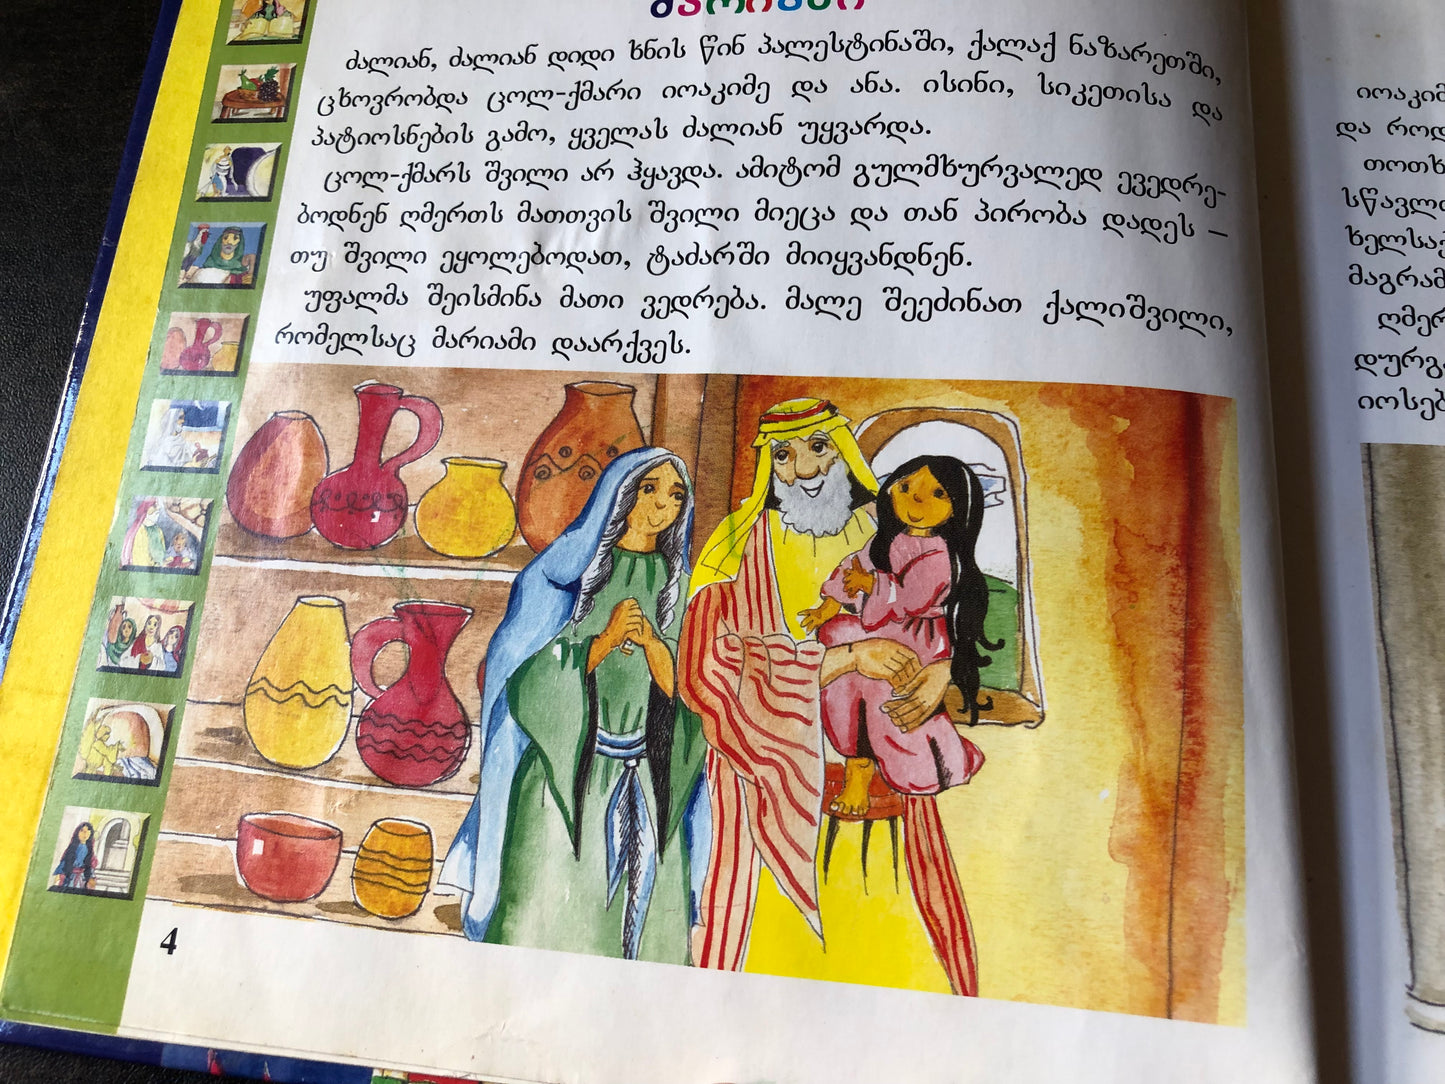 მარიამი
ძალიან, ძალიან დიდი ხნის წინ პალესტინაში, ქალაქ ნაზარეთში,
ცხოვრობდა ცოლ-ქმარი იოაკიმე და ანა. ისინი, სიკეთისა და
პატიოსნების გამო, ყველას ძალიან უყვარდა.
ცოლ-ქმარს შვილი არ ჰყავდა. ამიტომ გულმხურვალედ ევედრე-
ბოდნენ ღმერთს მათთვის შვილი მიეცა და თან პირობა დადეს –
თუ შვილი ეყოლებოდათ, ტაძარში მიიყვანდნენ.
უფალმა შეისმინა მათი ვედრება. მალე შეეძინათ ქალიშვილი,
რომელსაც მარიამი დაარქვეს.
4
და
თოთხ
ღმერ
დურგ
იოსებ